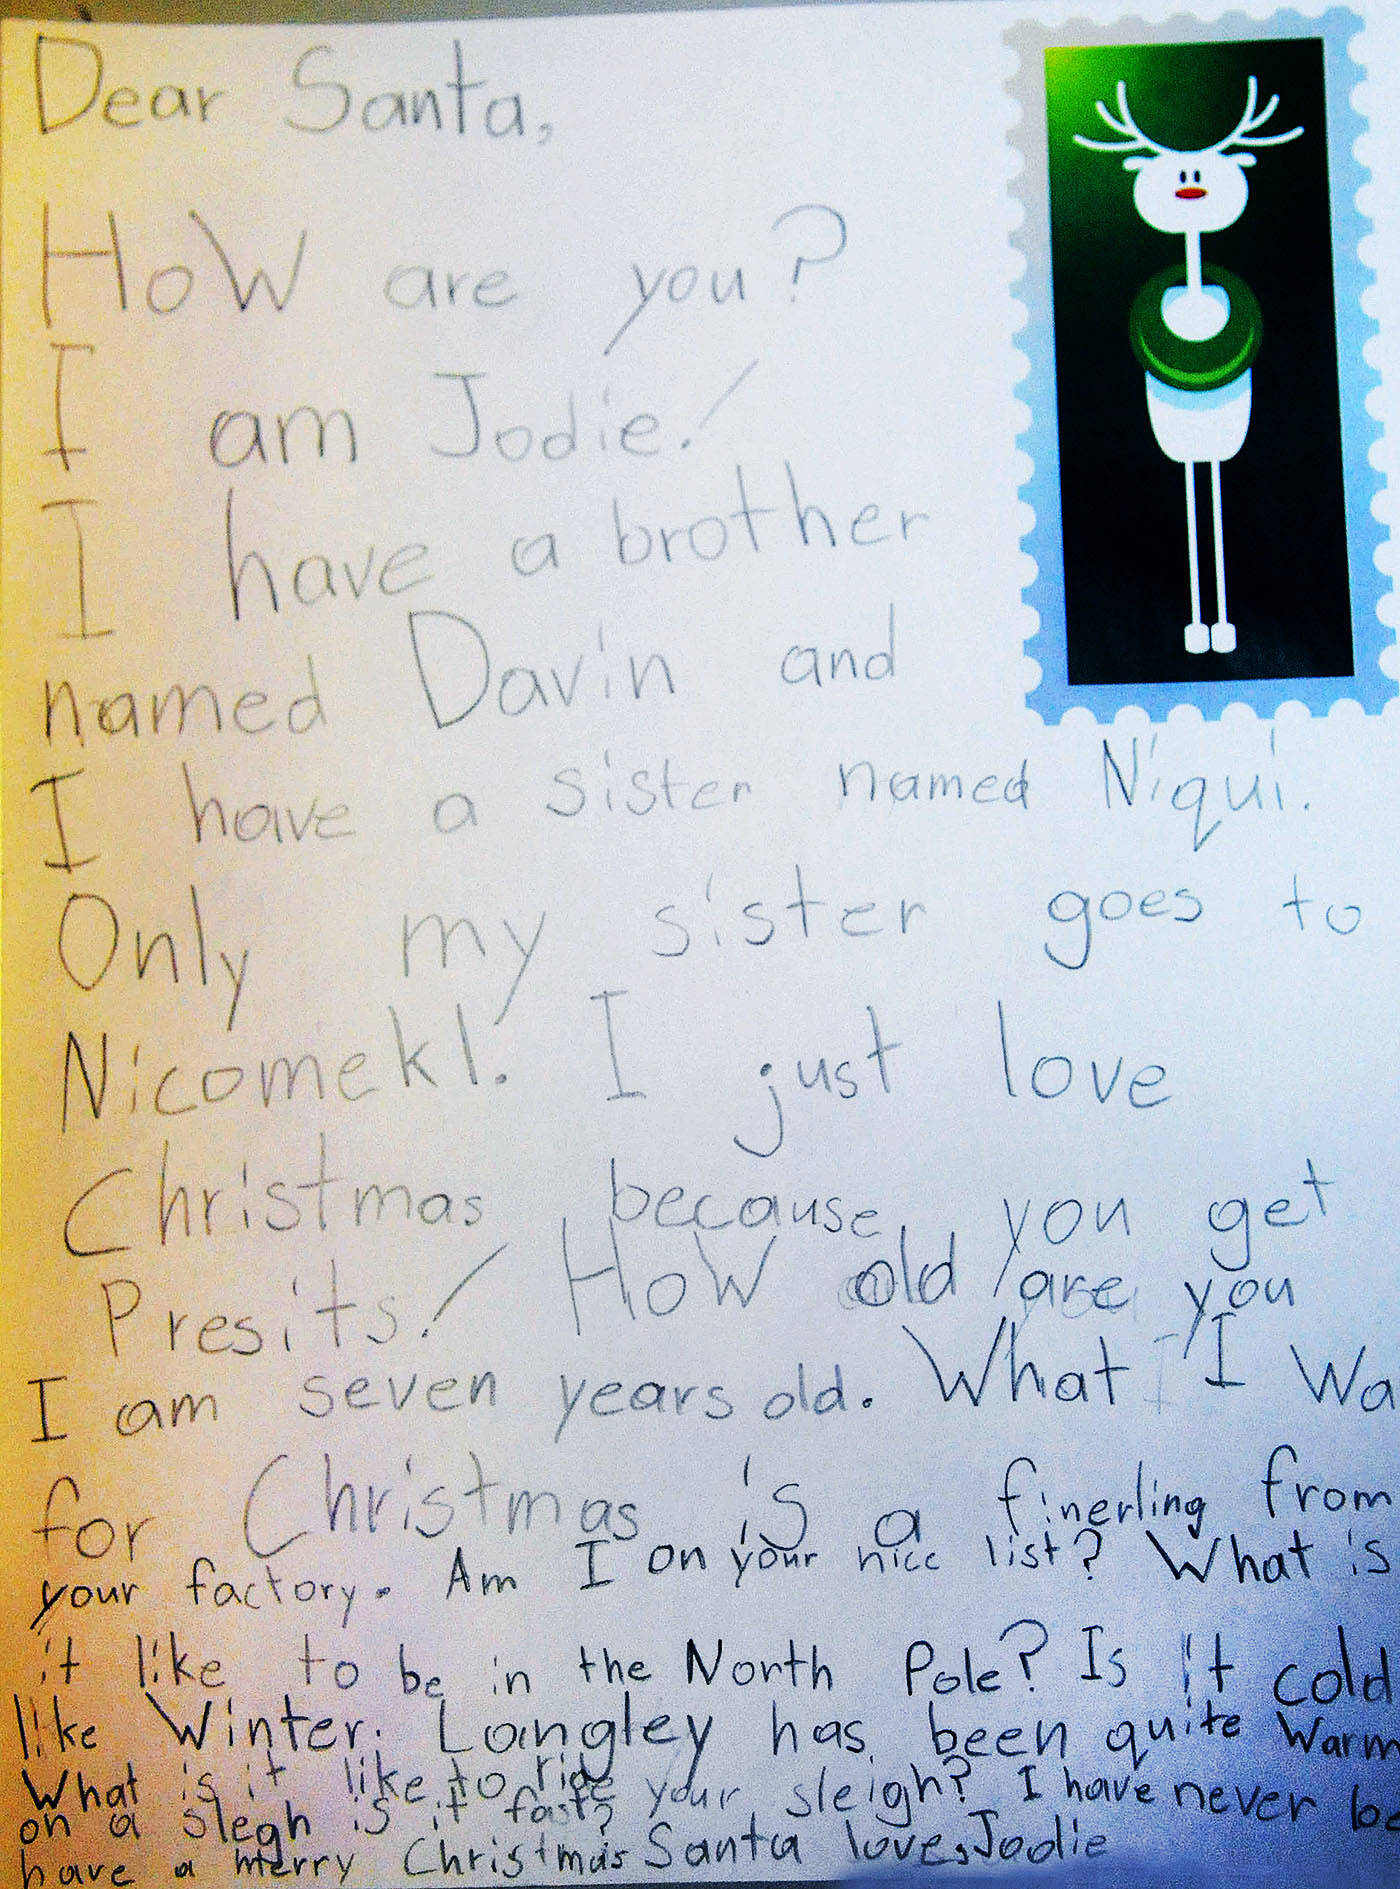 Dear Santa,
HoW are you?
I am Jodie!
I have a brother
named Davin and
I have a sister named Niqui.
Only my sister goes to
Nicomekl. I just love
Christmas because you get
Presits! HoW old are you
I am seven years old. What I Wa
for Christmas is a finerling from
your factory. Am I on your nice list? What is
it like to be in the North Pole? Is it cold
like Winter. Langley has been quite Warm
What is it like to ride your sleigh? I have never be
on a slegh is it fast?
have a merry Christmas Santa love, Jodie